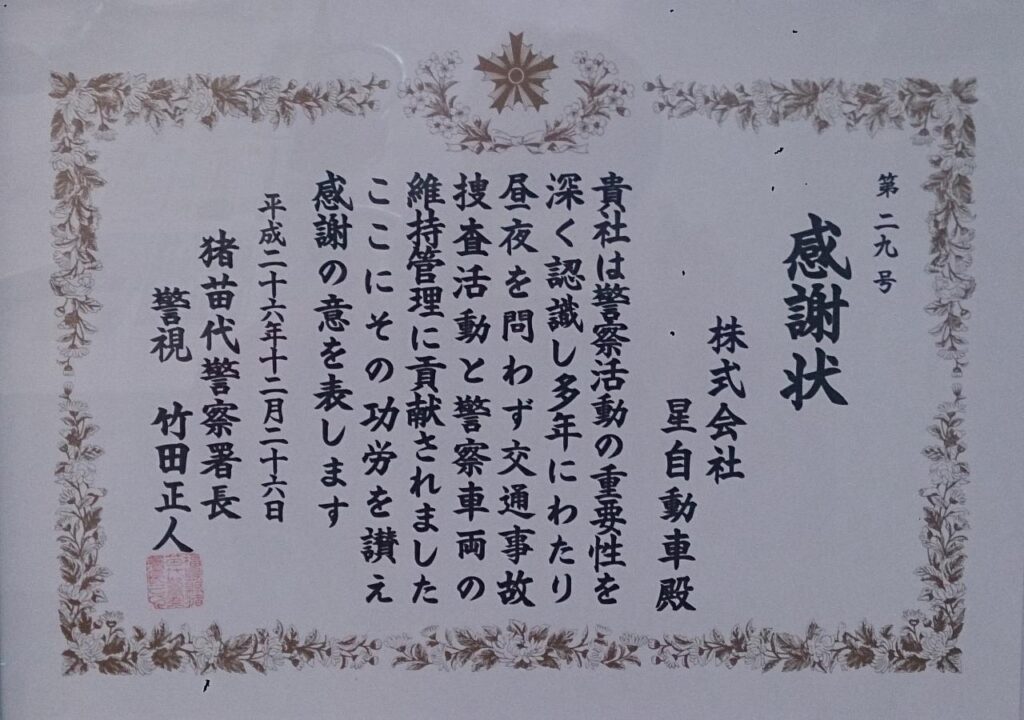 第二九号
感謝状
株式会社
星自動車殿
貴社は警察活動の重要性を
深く認識し多年にわたり
昼夜を問わず交通事故
捜査活動と警察車両の
維持管理に貢献されました
ここにその功労を讃え
感謝の意を表します
平成二十六年十二月二十六日
猪苗代警察署長
警視 竹田正人